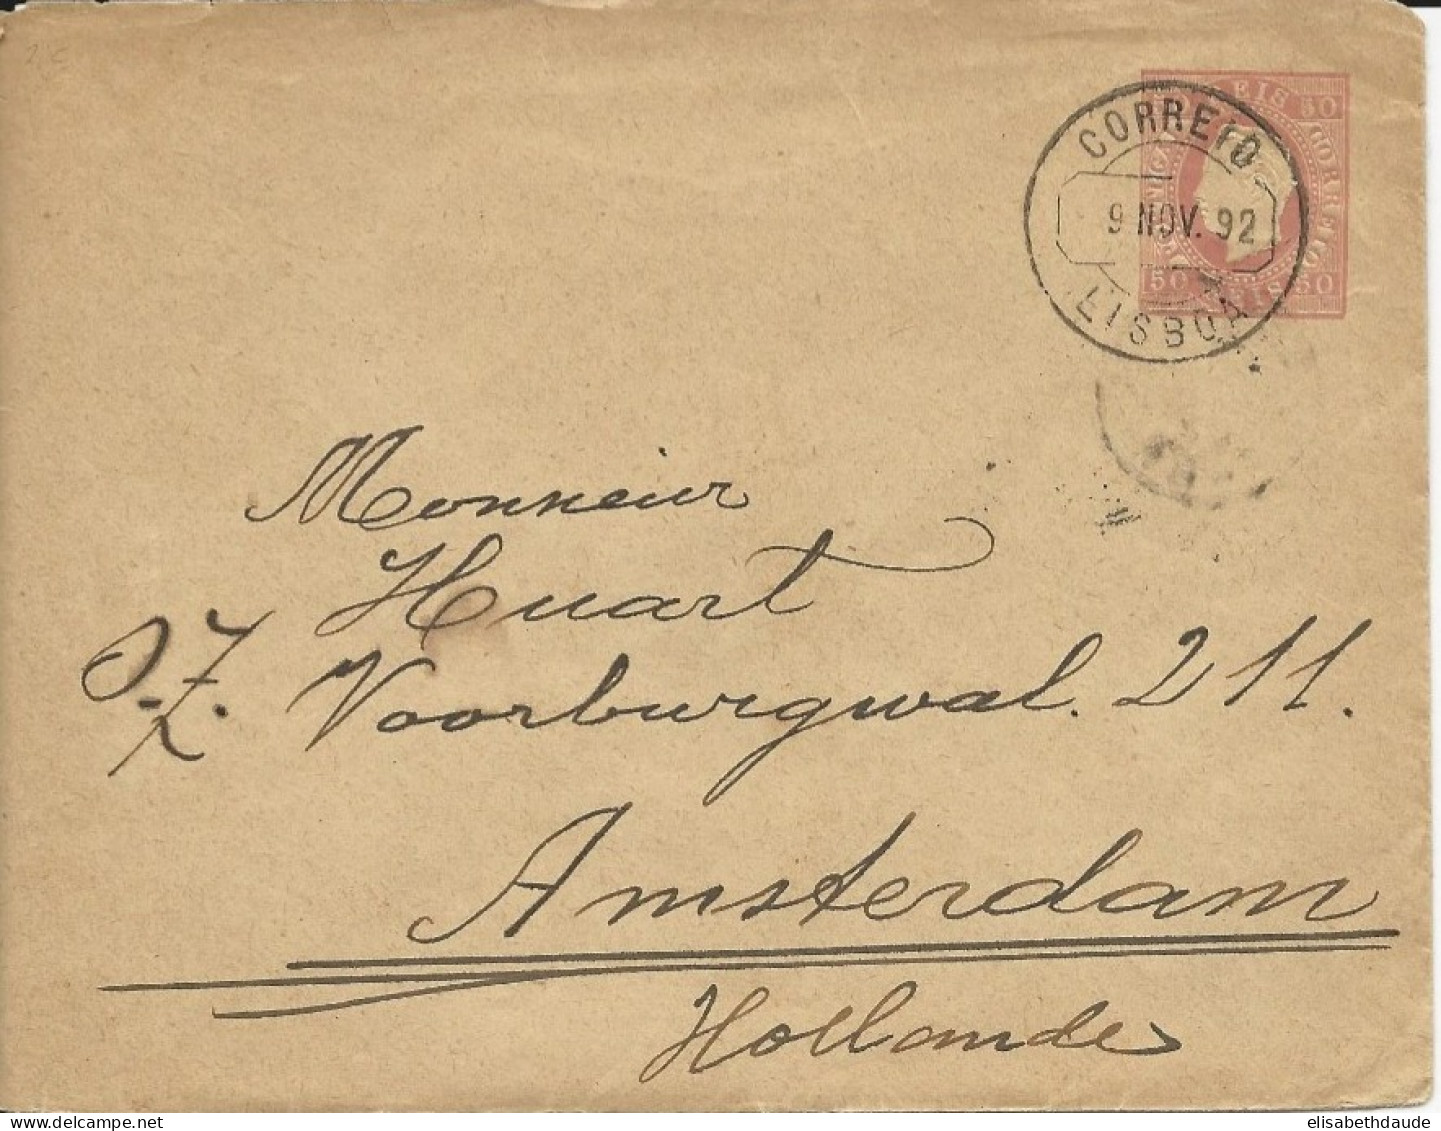 CORREIO
9 NOV. 92
LISBOA
REIS 50
CORREIO
50 REIS 50
Monsieur
Huart
O.Z. Voorburgwal. 211.
Amsterdam
Hollande
elisabethdaude